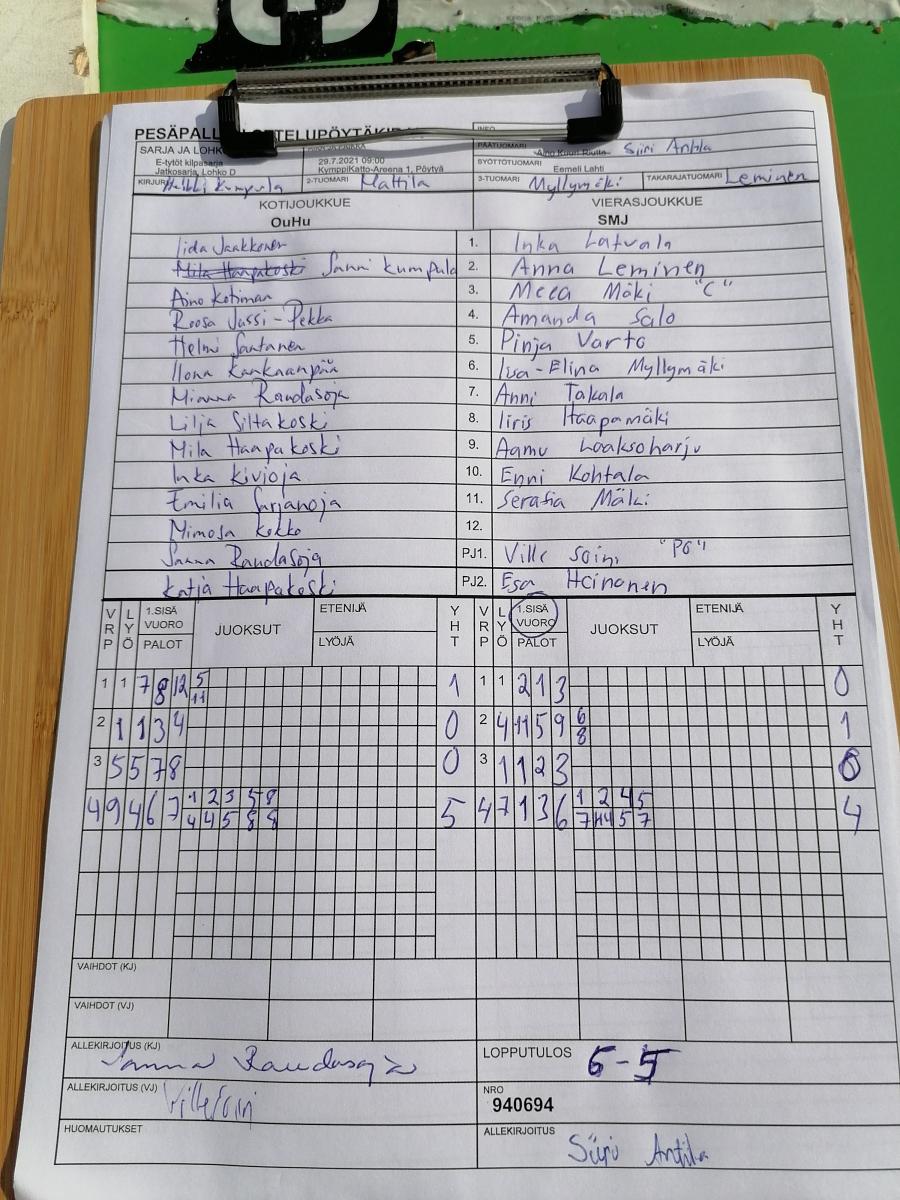 PESÄPALL
SARJA JA LOHK
E-tytöt kilpasarja
Jatkosarja, Lohko D
29.7.2021 09:00
KymppiKatto-Areena 1, Pöytyä
INFO
PÄÄTUOMARI Siiri Antila
SYÖTTÖTUOMARI Eemeli Lahti
KIRJURI Heikki Kumpula 2-TUOMARI Mattila 3-TUOMARI Myllymäki TAKARAJATUOMARI Leminen
KOTIJOUKKUE VIERASJOUKKUE
OuHu SMJ
Iida Jaakkonen 1. Inka Latvala
Mila Haapakoski Sanni Kumpula 2. Anna Leminen
Aino Kotiman 3. Meea Mäki "C"
Roosa Jussi-Pekka 4. Amanda Salo
Helmi Santanen 5. Pinja Varto
Ilona Kankaanpää 6. Iisa-Elina Myllymäki
Minna Raudasoja 7. Anni Takala
Lilja Siltakoski 8. Iiris Haapamäki
Mila Haapakoski 9. Aamu Laaksoharju
Inka Kivioja 10. Enni Kohtala
Emilia Sarjanoja 11. Serafia Mäki
Mimosa Kokko 12.
Sanna Raudasoja PJ1. Ville Soini "PG"
Katja Haapakoski PJ2. Esa Heinonen
VRP LYÖ 1.SISÄ VUORO PALOT JUOKSUT ETENIJÄ LYÖJÄ YHT VRP LYÖ 1.SISÄ VUORO PALOT JUOKSUT ETENIJÄ LYÖJÄ YHT
1 1 7 8 12 5 1 1 1 2 1 3 0
11
2 1 1 3 4 0 2 4 11 5 9 6 1
8
3 5 5 7 8 0 3 1 1 2 3 0
4 9 4 6 7 1 2 3 5 8 5 4 7 1 3 6 1 2 4 5 4
4 4 5 8 8 7 11 5 7
VAIHDOT (KJ)
VAIHDOT (VJ)
ALLEKIRJOITUS (KJ) Sanna Raudasoja LOPPUTULOS 6-5
ALLEKIRJOITUS (VJ) Ville Soini NRO
940694
HUOMAUTUKSET ALLEKIRJOITUS
Siiri Antila